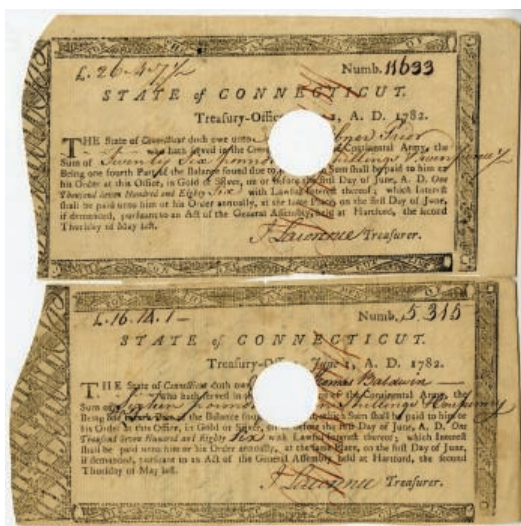 £. 26.4.7½
Numb. 11633
STATE of CONNECTICUT.
Treasury-Office 1, A. D. 1782.
THE State of Connecticut doth owe unto Abner Prior
who hath served in the Connecticut of the Continental Army, the
Sum of Twenty Six pounds Shillings
Being one fourth Part of the Balance found due to Sum shall be paid to him or
his Order at this Office, in Gold or Silver, on or before the first Day of June, A. D. One
Thousand Seven Hundred and Eighty-Six with Lawful Interest thereof; which Interest
shall be paid unto him or his Order annually, at the same Place, on the first Day of June,
if demanded, pursuant to an Act of the General Assembly, held at Hartford, the second
Thursday of May last.
J Lawrence Treasurer.
£. 16.14.1
Numb. 5315
STATE of CONNECTICUT.
Treasury-Office June 1, A. D. 1782.
THE State of Connecticut doth owe Thomas Baldwin
who hath served in the of the Continental Army, the
Sum of Sixteen pounds Shillings
Being one fourth Part of the Balance found which Sum shall be paid to him or
his Order at this Office, in Gold or Silver, on or before the first Day of June, A. D. One
Thousand Seven Hundred and Eighty Six with Lawful Interest thereof; which Interest
shall be paid unto him or his Order annually, at the same Place, on the first Day of June,
if demanded, pursuant to an Act of the General Assembly held at Hartford, the second
Thursday of May last.
J Lawrence Treasurer.